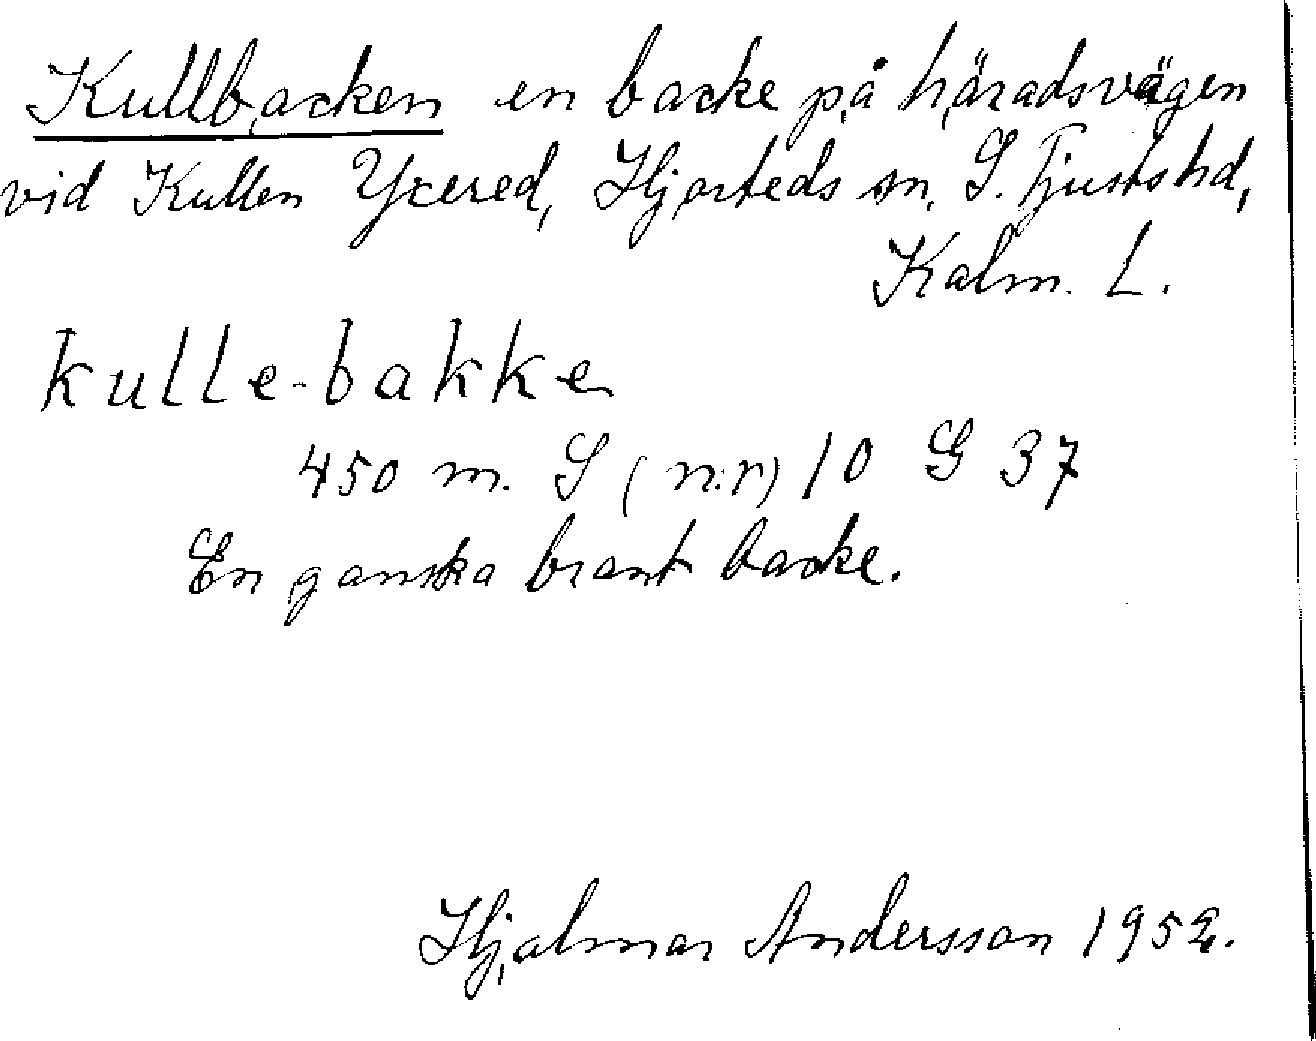 Kullbacken en backe på häradsvägen
vid Kullen Yxered, Hjorteds sn, S. Tjusts hd,
Kalm. L.
kulle-bakken
450 m. S (n:r) 10 G 37
En ganska brant backe.
Hjalmar Andersson 1952.